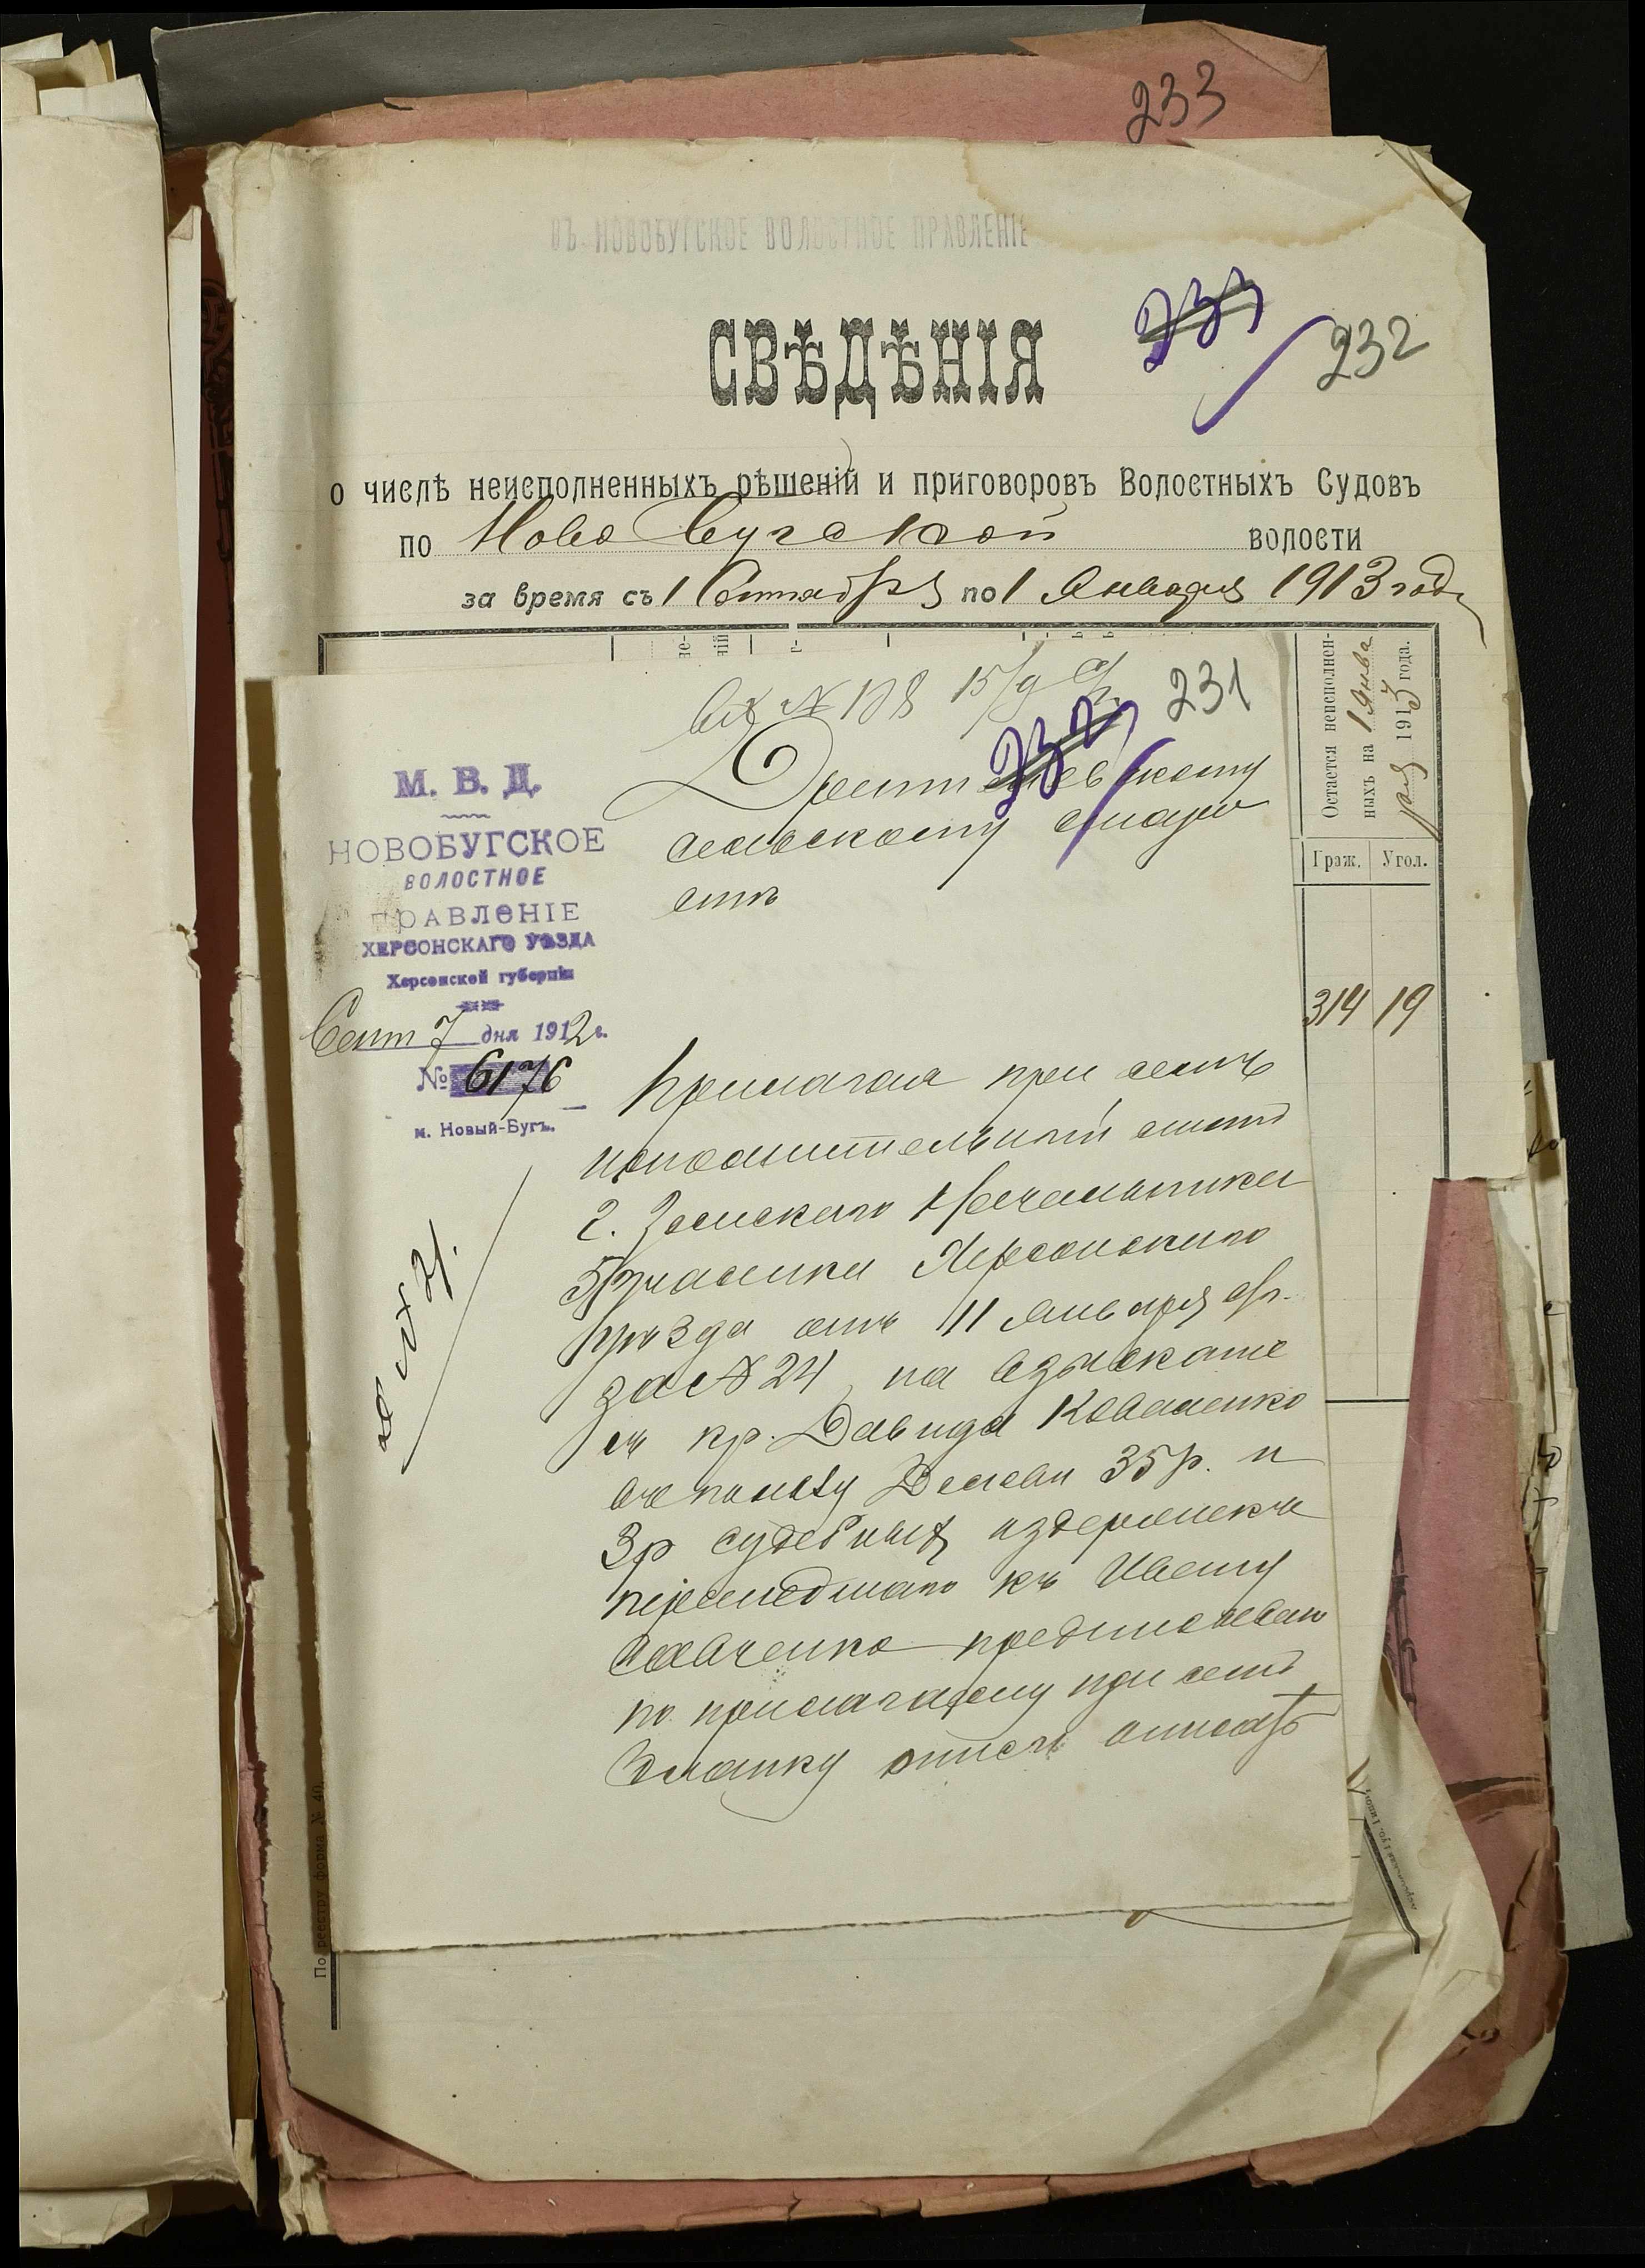 233
ВЪ НОВОБУГСКОЕ ВОЛОСТНОЕ ПРАВЛЕНІЕ
СВѢДѢНІЯ
233
232
о числѣ неисполненныхъ рѣшеній и приговоровъ Волостныхъ Судовъ
по Ново Бугской волости
за время съ 1 Сентября по 1 Января 1913 года
Остается неисполнен-
ныхъ на 1 Янва
ря 1913 года.
Граж. Угол.
314 19
Вх № 198 15/9
232
231
М. В. Д.
НОВОБУГСКОЕ
ВОЛОСТНОЕ
ПРАВЛЕНІЕ
ХЕРСОНСКАГО УѢЗДА
Херсонской губерніи
Сент 7 дня 1912 г.
№ 6176
м. Новый-Бугъ.
сельскому старо
стѣ
Прилагая при семъ
исполнительный листъ
г. Земскаго Начальника
5 участка Херсонскаго
уѣзда отъ 11 Января
за № 24, на взысканіе
съ кр. Давида Коваленко
въ пользу 35 р. и
3 р судебныхъ издержекъ
перешедшаго къ Ивану
Савченко предписываю
по прилагаему при семъ
бланку описи описать
По реестру форма № 40.